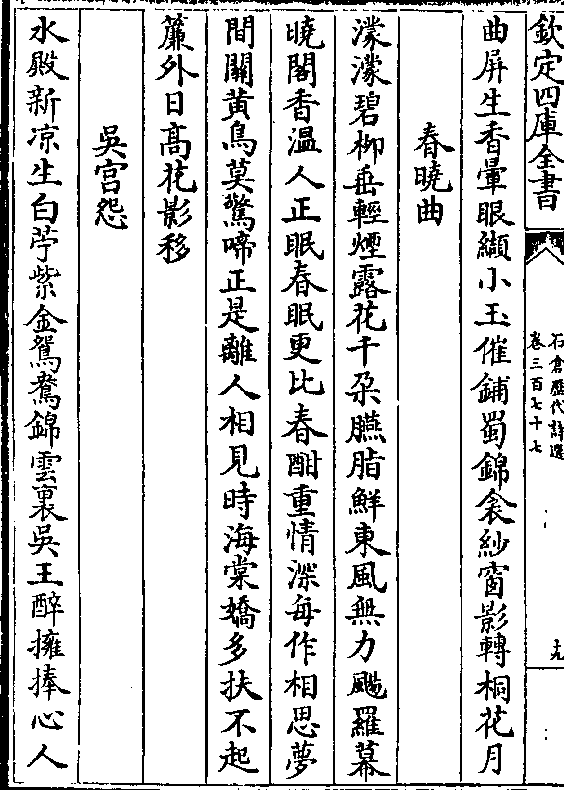 欽定四庫全書
石倉歷代詩選
卷三百七十七
十九
曲屏生香暈眼纈小玉催鋪蜀錦衾紗窗影轉桐花月
春曉曲
濛濛碧柳垂輕煙露花千朶臙脂鮮東風無力颺羅幕
曉閣香溫人正眠春眠更比春酣重情深每作相思夢
間關黃鳥莫驚啼正是離人相見時海棠嬌多扶不起
簾外日高花影移
吳宮怨
水殿新凉生白苧紫金鴛鴦錦雲裏吳王醉擁捧心人